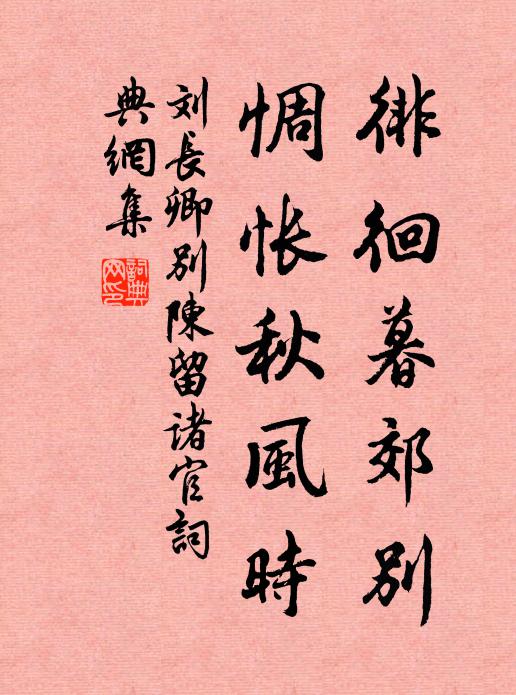 徘徊暮郊别
惆怅秋風時
刘長卿别陳留諸官詞
典網集
詞典
网印